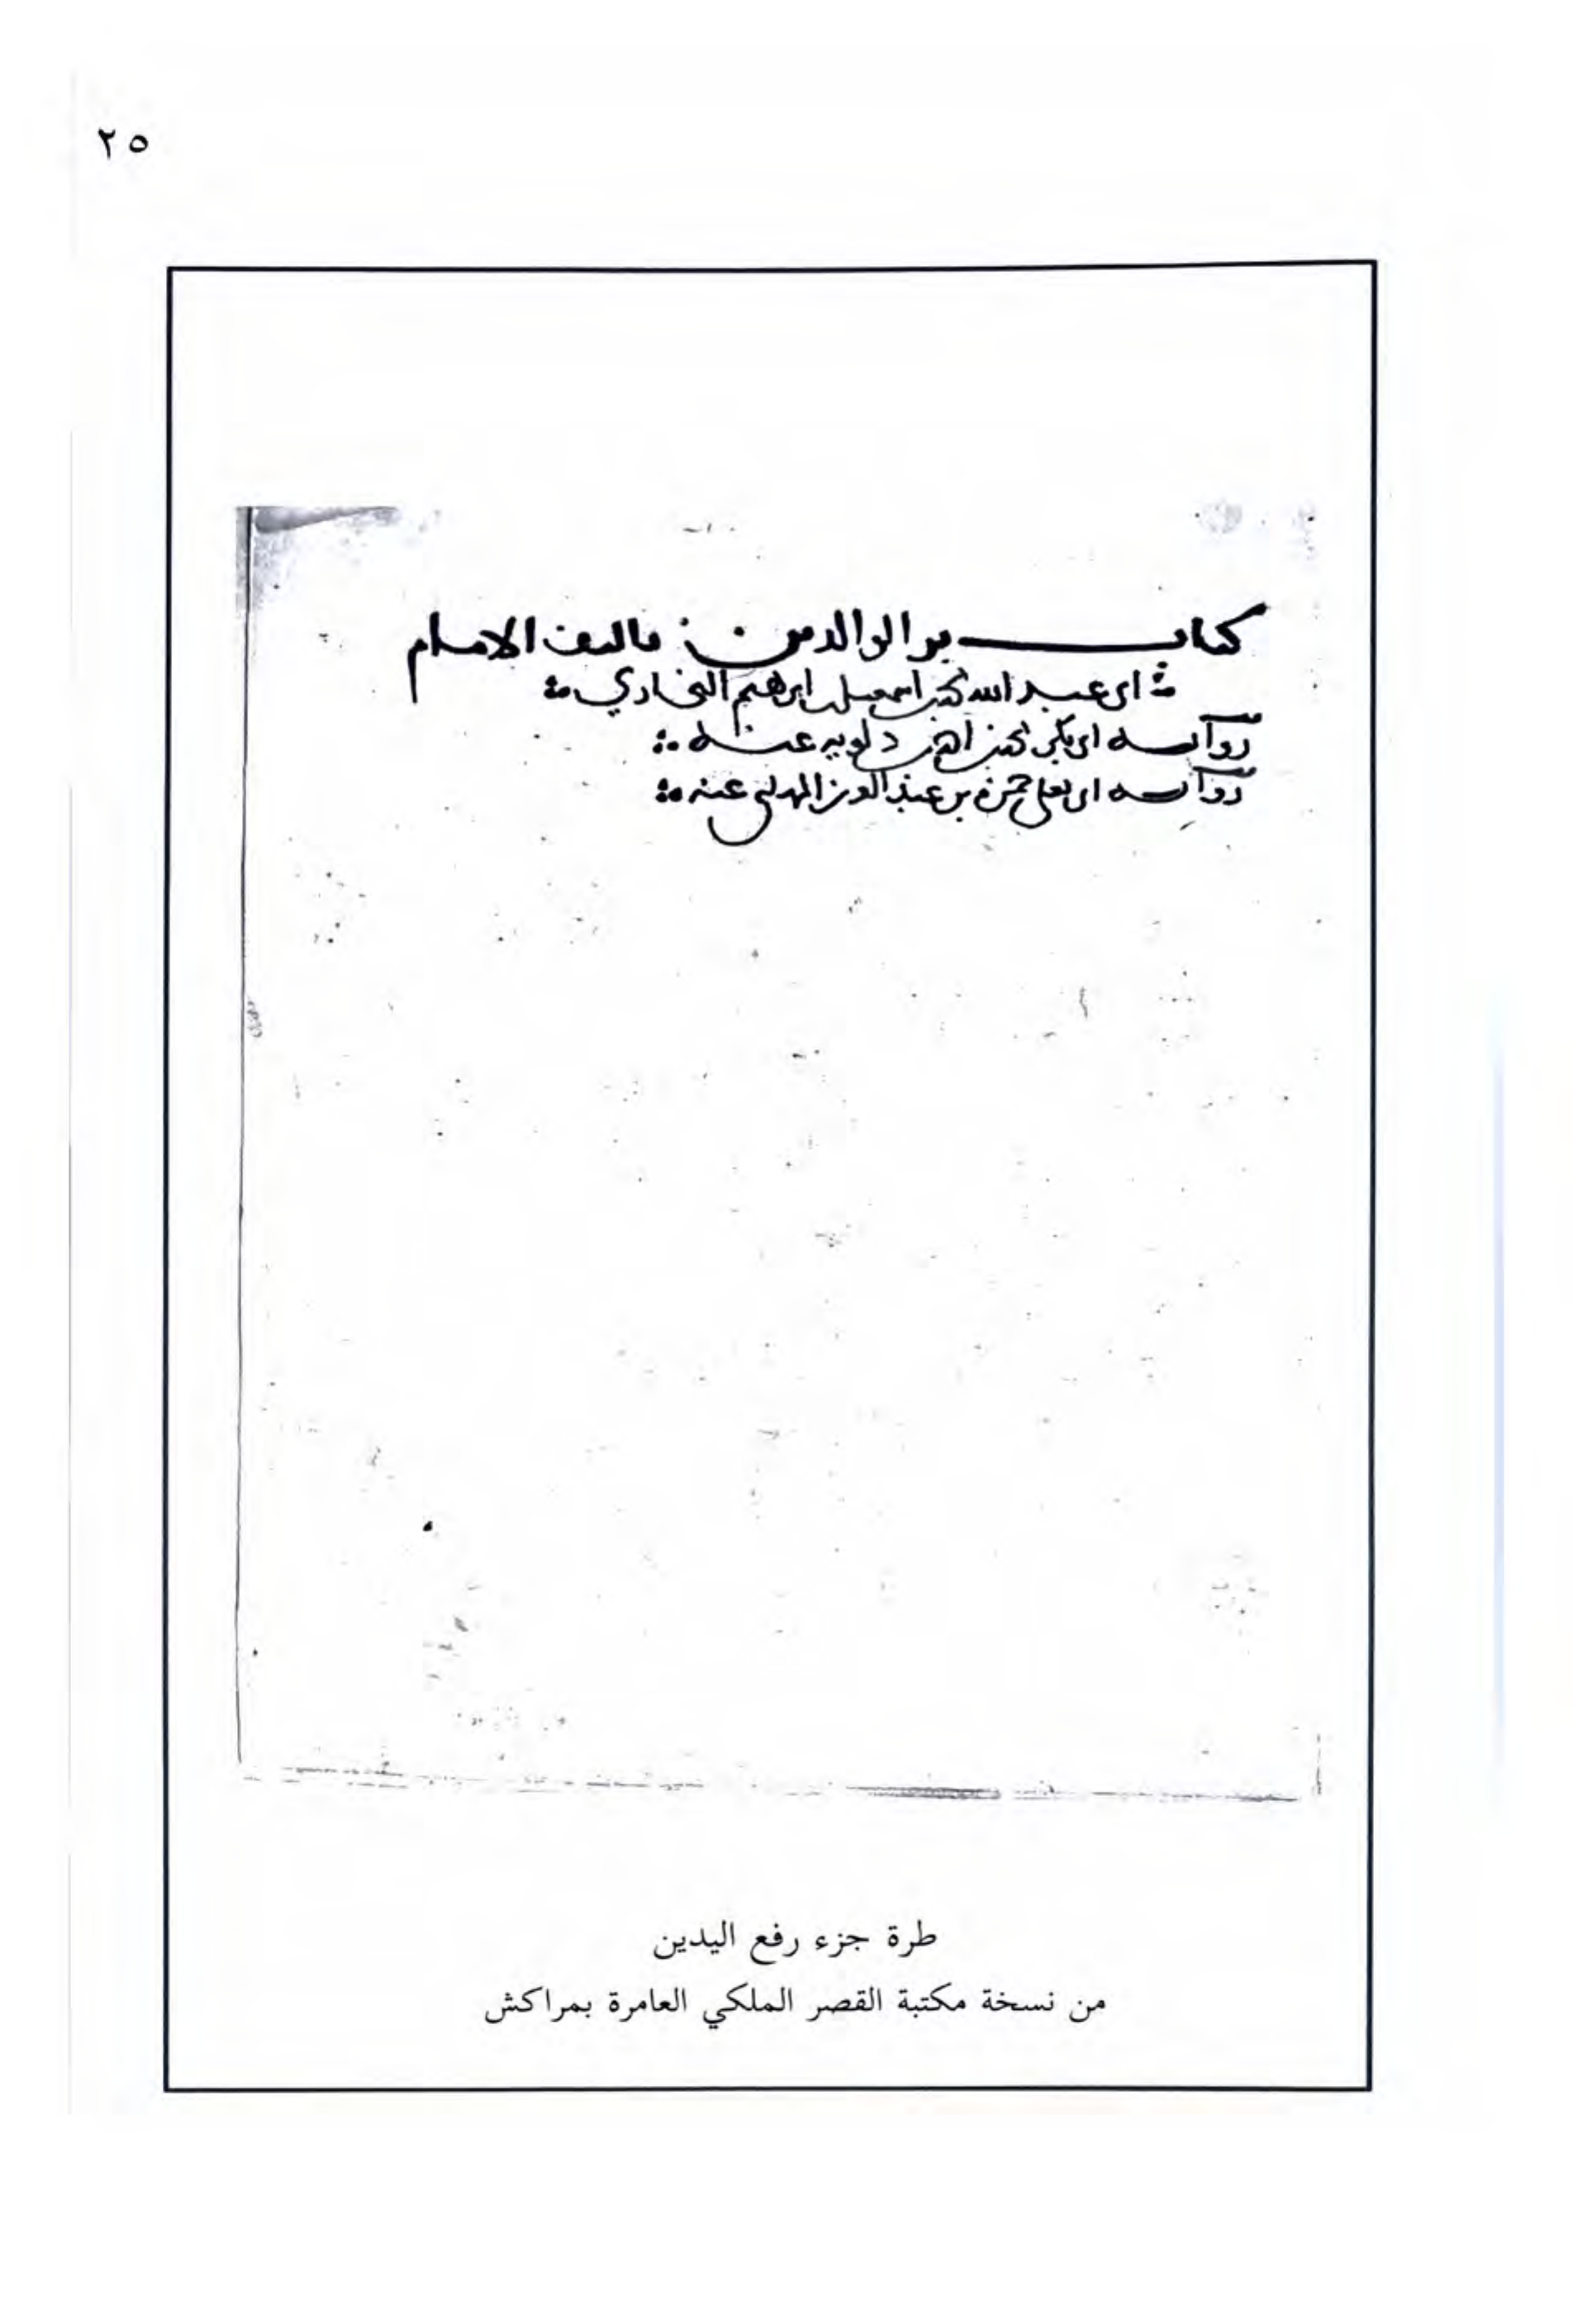 ٢٥
كتاب بر الوالدين تاليف الامام
ابي عبد الله محمد بن اسمعيل بن ابرهيم البخاري
رواية ابي بكر محمد بن احمد بن دلويه عنه
رواية ابي يعلى حمزة بن عبد العزيز المهلبي عنه
طرة جزء رفع اليدين
من نسخة مكتبة القصر الملكي العامرة بمراكش